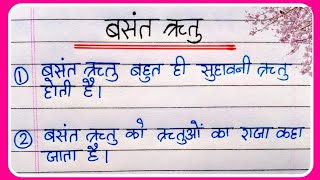 बसंत ऋतु
① बसंत ऋतु बहुत ही सुहावनी ऋतु
होती है।
② बसंत ऋतु को ऋतुओं का राजा कहा
जाता है।